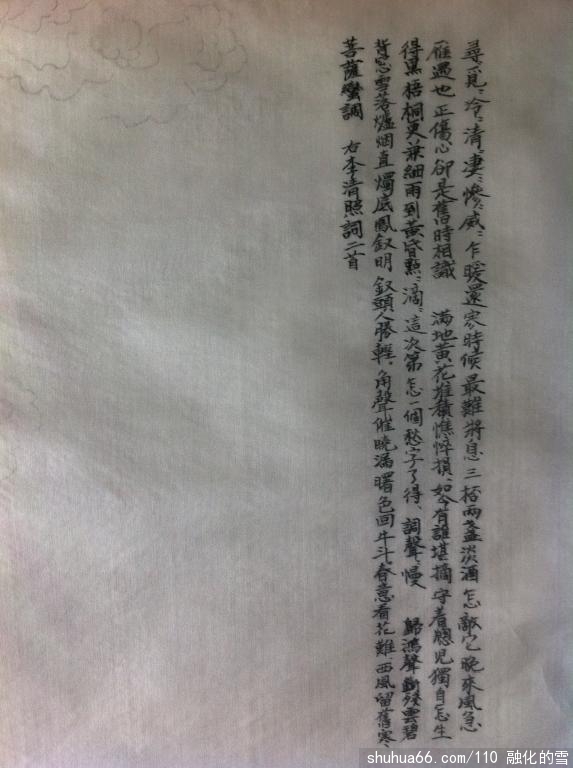 尋〻覓〻冷〻清〻凄〻慘〻戚〻乍暖還寒時候最難將息三杯兩盞淡酒怎敵它晚來風急
雁過也正傷心卻是舊時相識 滿地黃花堆積憔悴損如今有誰堪摘守着窗兒獨自怎生
得黑梧桐更兼細雨到黃昏點〻滴〻這次第怎一個愁字了得 調聲〻慢 歸鴻聲斷殘雲碧
背窗雪落爐烟直燭底鳳釵明釵頭人勝輕角聲催曉漏曙色回牛斗春意看花難西風留舊寒
菩薩蠻調 右李清照詞二首
shuhua66.com/110 融化的雪